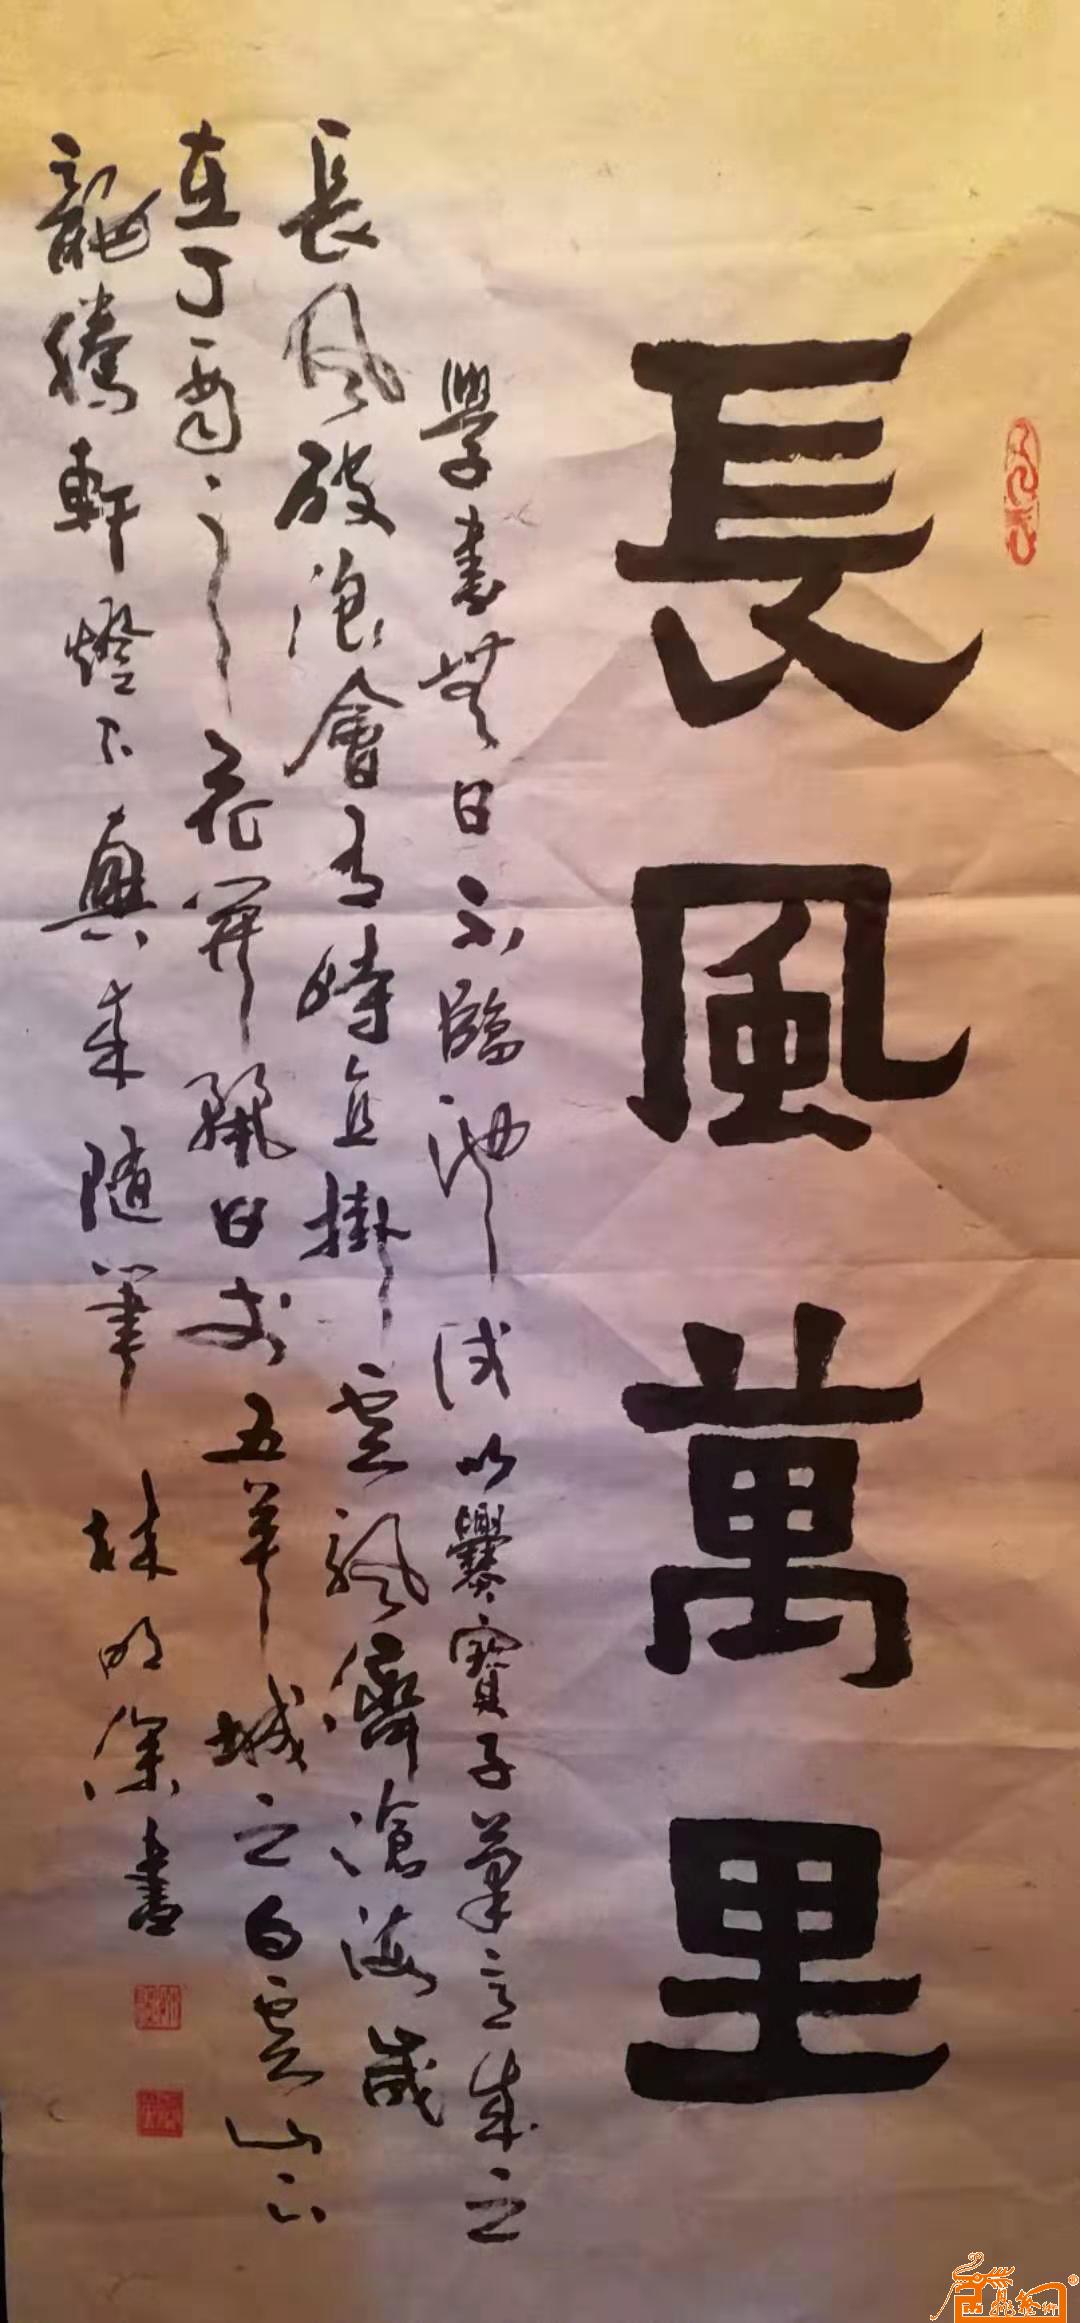 長風萬里
學書無日不臨池試以爨寶子筆意成之
長風破浪會有時直掛雲帆濟滄海歲
在丁酉之花開日于五羊城之白雲山下
龍騰軒燈下興來隨筆 林明深書